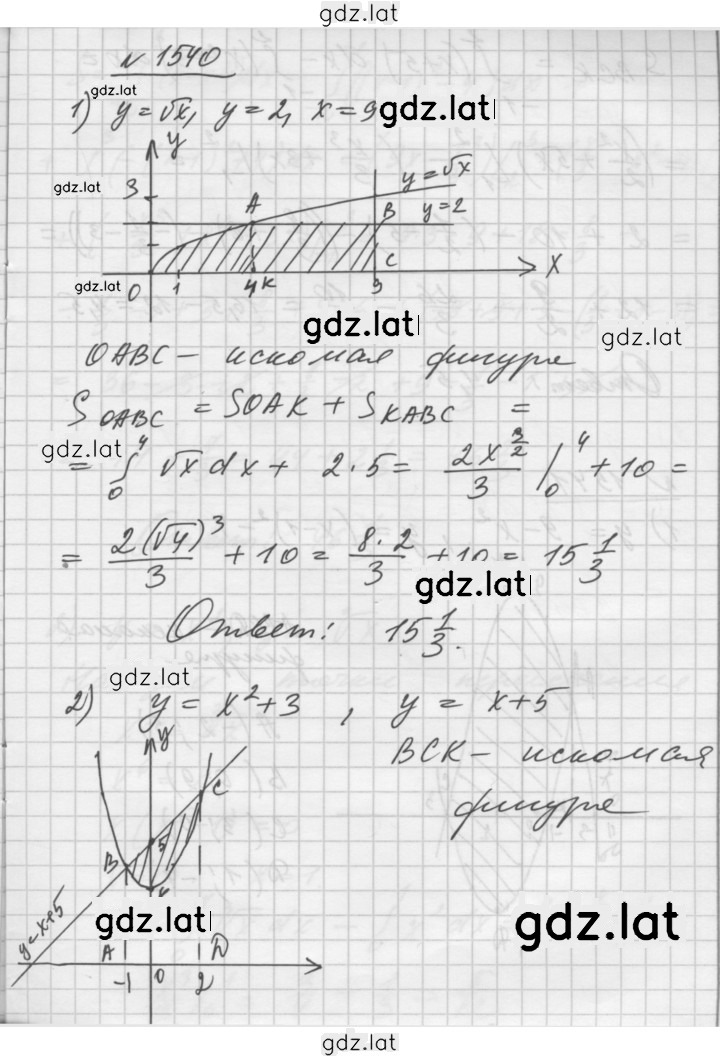 gdz.lat
N 1540
gdz.lat
1) y=√x, y=2, x=9
gdz.lat
y
y=√x
gdz.lat
3
A
B
y=2
gdz.lat
C
0 1 4 K 9 X
gdz.lat
gdz.lat
OABC – искомая фигура
S OABC = SOAK + S KABC =
gdz.lat
= ∫₀⁴ √x dx + 2·5 = 2x^(3/2)/3 |₀⁴ + 10 =
= 2(√4)³/3 + 10 = 8·2/3 + 10 = 15 1/3
gdz.lat
Ответ: 15 1/3.
gdz.lat
2) y = x²+3 , y = x+5
BCK – искомая
фигура
y
C
5
B
K
y=x+5
gdz.lat
gdz.lat
A D
-1 0 2
gdz.lat